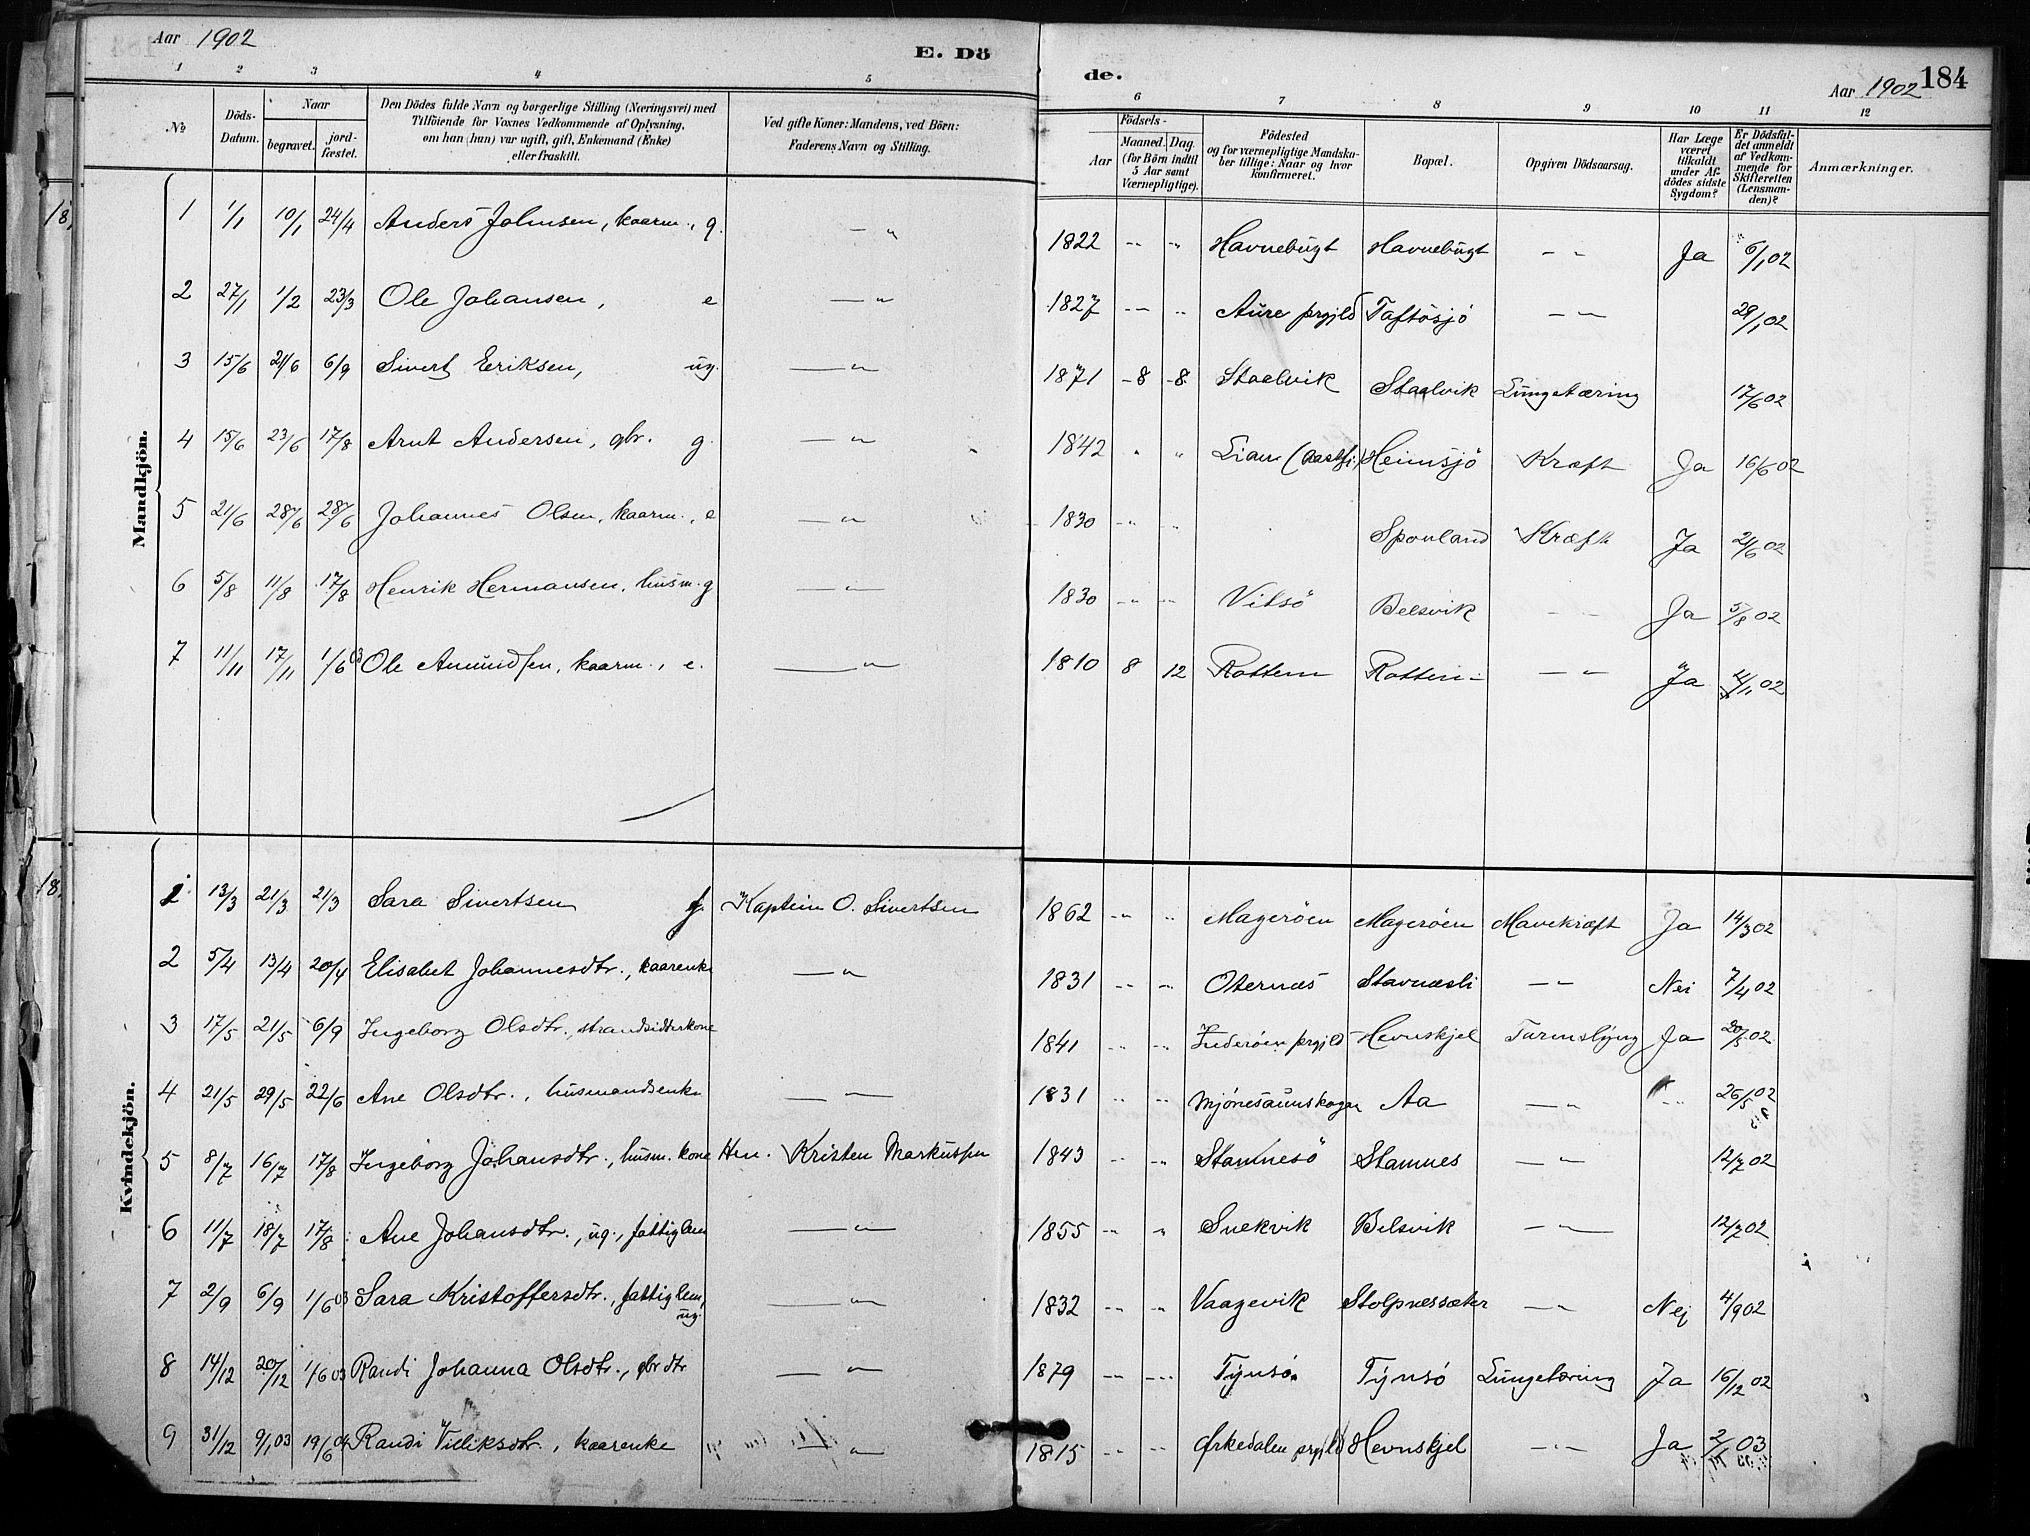 Aar 1902
E. Dö
de.
Aar 1902 184
1 2 3 4 5 6 7 8 9 10 11 12
No
Döds-Datum.
Naar
begravet.
jord-fæstet.
Den Dödes fulde Navn og borgerlige Stilling (Næringsvei) med
Tilföiende for Voxnes Vedkommende af Oplysning,
om han (hun) var ugift, gift, Enkemand (Enke)
eller fraskilt.
Ved gifte Koner: Mandens, ved Börn:
Faderens Navn og Stilling.
Födsels-
Aar
Maaned. Dag.
(for Börn indtil
5 Aar samt
Værnepligtige).
Födested
og for værnepligtige Mandska-
ber tillige: Naar og hvor
konfirmeret.
Bopæl.
Opgiven Dödsaarsag.
Har Læge
været
tilkaldt
under Af-
dödes sidste
Sygdom?
Er Dödsfal-
det anmeldt
af Vedkom-
mende for
Skifteretten
(Lensman-
den)?
Anmærkninger.
Mandkjön.
1 1/1 10/1 24/4 Anders Johnsen, kaarm., g. — " 1822 -- " Havnebugt Havnebugt — " Ja 6/1 02
2 27/1 1/2 23/3 Ole Johansen, e — " 1827 -- " Aure prgjld Taftösjö — " 28/1 02
3 15/6 21/6 6/9 Sivert Eriksen, ug. — " 1871 -8 -8 Staalvik Staalvik Lungetæring 17/6 02
4 15/6 23/6 17/8 Arnt Andersen, gbr. g. — " 1842 " " Lian Heimsjö Kræft Ja 16/6 02
5 21/6 28/6 28/6 Johannes Olsen, kaarm., e — " 1830 -- " Sponland Kræft Ja 21/6 02
6 5/8 11/8 17/8 Henrik Hermansen, husm. g — " 1830 -- -- Vitsö Belsvik — " Ja 5/8 02
7 11/11 17/11 1/6 03 Ole Amundsen, kaarm., e. — " 1810 8 12 Rottem Rottem — " Ja 11/11 02
Kvindekjön.
1 13/3 21/3 21/3 Sara Sivertsen g. Kaptein O. Sivertsen 1862 -- " Magerøen Magerøen Mavekræft Ja 14/3 02
2 5/4 13/4 20/4 Elisabet Johannesdtr., kaarenke — " 1831 -- -- Oternæs Stavnæsli — " Nei 7/4 02
3 17/5 21/5 6/9 Ingeborg Olsdtr., strandsidderkone 1841 -- -- Inderöen prgjld Hevnskjel Tarmslyng Ja 20/5 02
4 21/5 29/5 22/6 Ane Olsdtr., husmandsenke — " 1831 -- -- Mjønesaunskogen Aa — " -- 26/5 02
5 8/7 16/7 17/8 Ingeborg Johansdtr., husm. kone Hm. Kristen Markussen 1843 -- -- Stamnesö Stamnes — " 12/7 02
6 11/7 18/7 17/8 Ane Johansdtr., ug., fattiglem — " 1855 -- " Snekvik Belsvik — " 12/7 02
7 2/9 6/9 1/6 03 Sara Kristoffersdtr., fattiglem, ug. — " 1832 -- " Vaagevik Stolpnessæter — " Nej 4/9 02
8 14/12 20/12 1/6 03 Randi Johanna Olsdtr., gbr dtr — " 1879 -- -- Tynsö Tynsö Lungetæring Ja 16/12 02
9 31/12 9/1 03 19/6 04 Randi Villiksdtr., kaarenke — " 1815 -- -- Ørkedalen prgjld Hevnskjel — " Ja 2/1 03